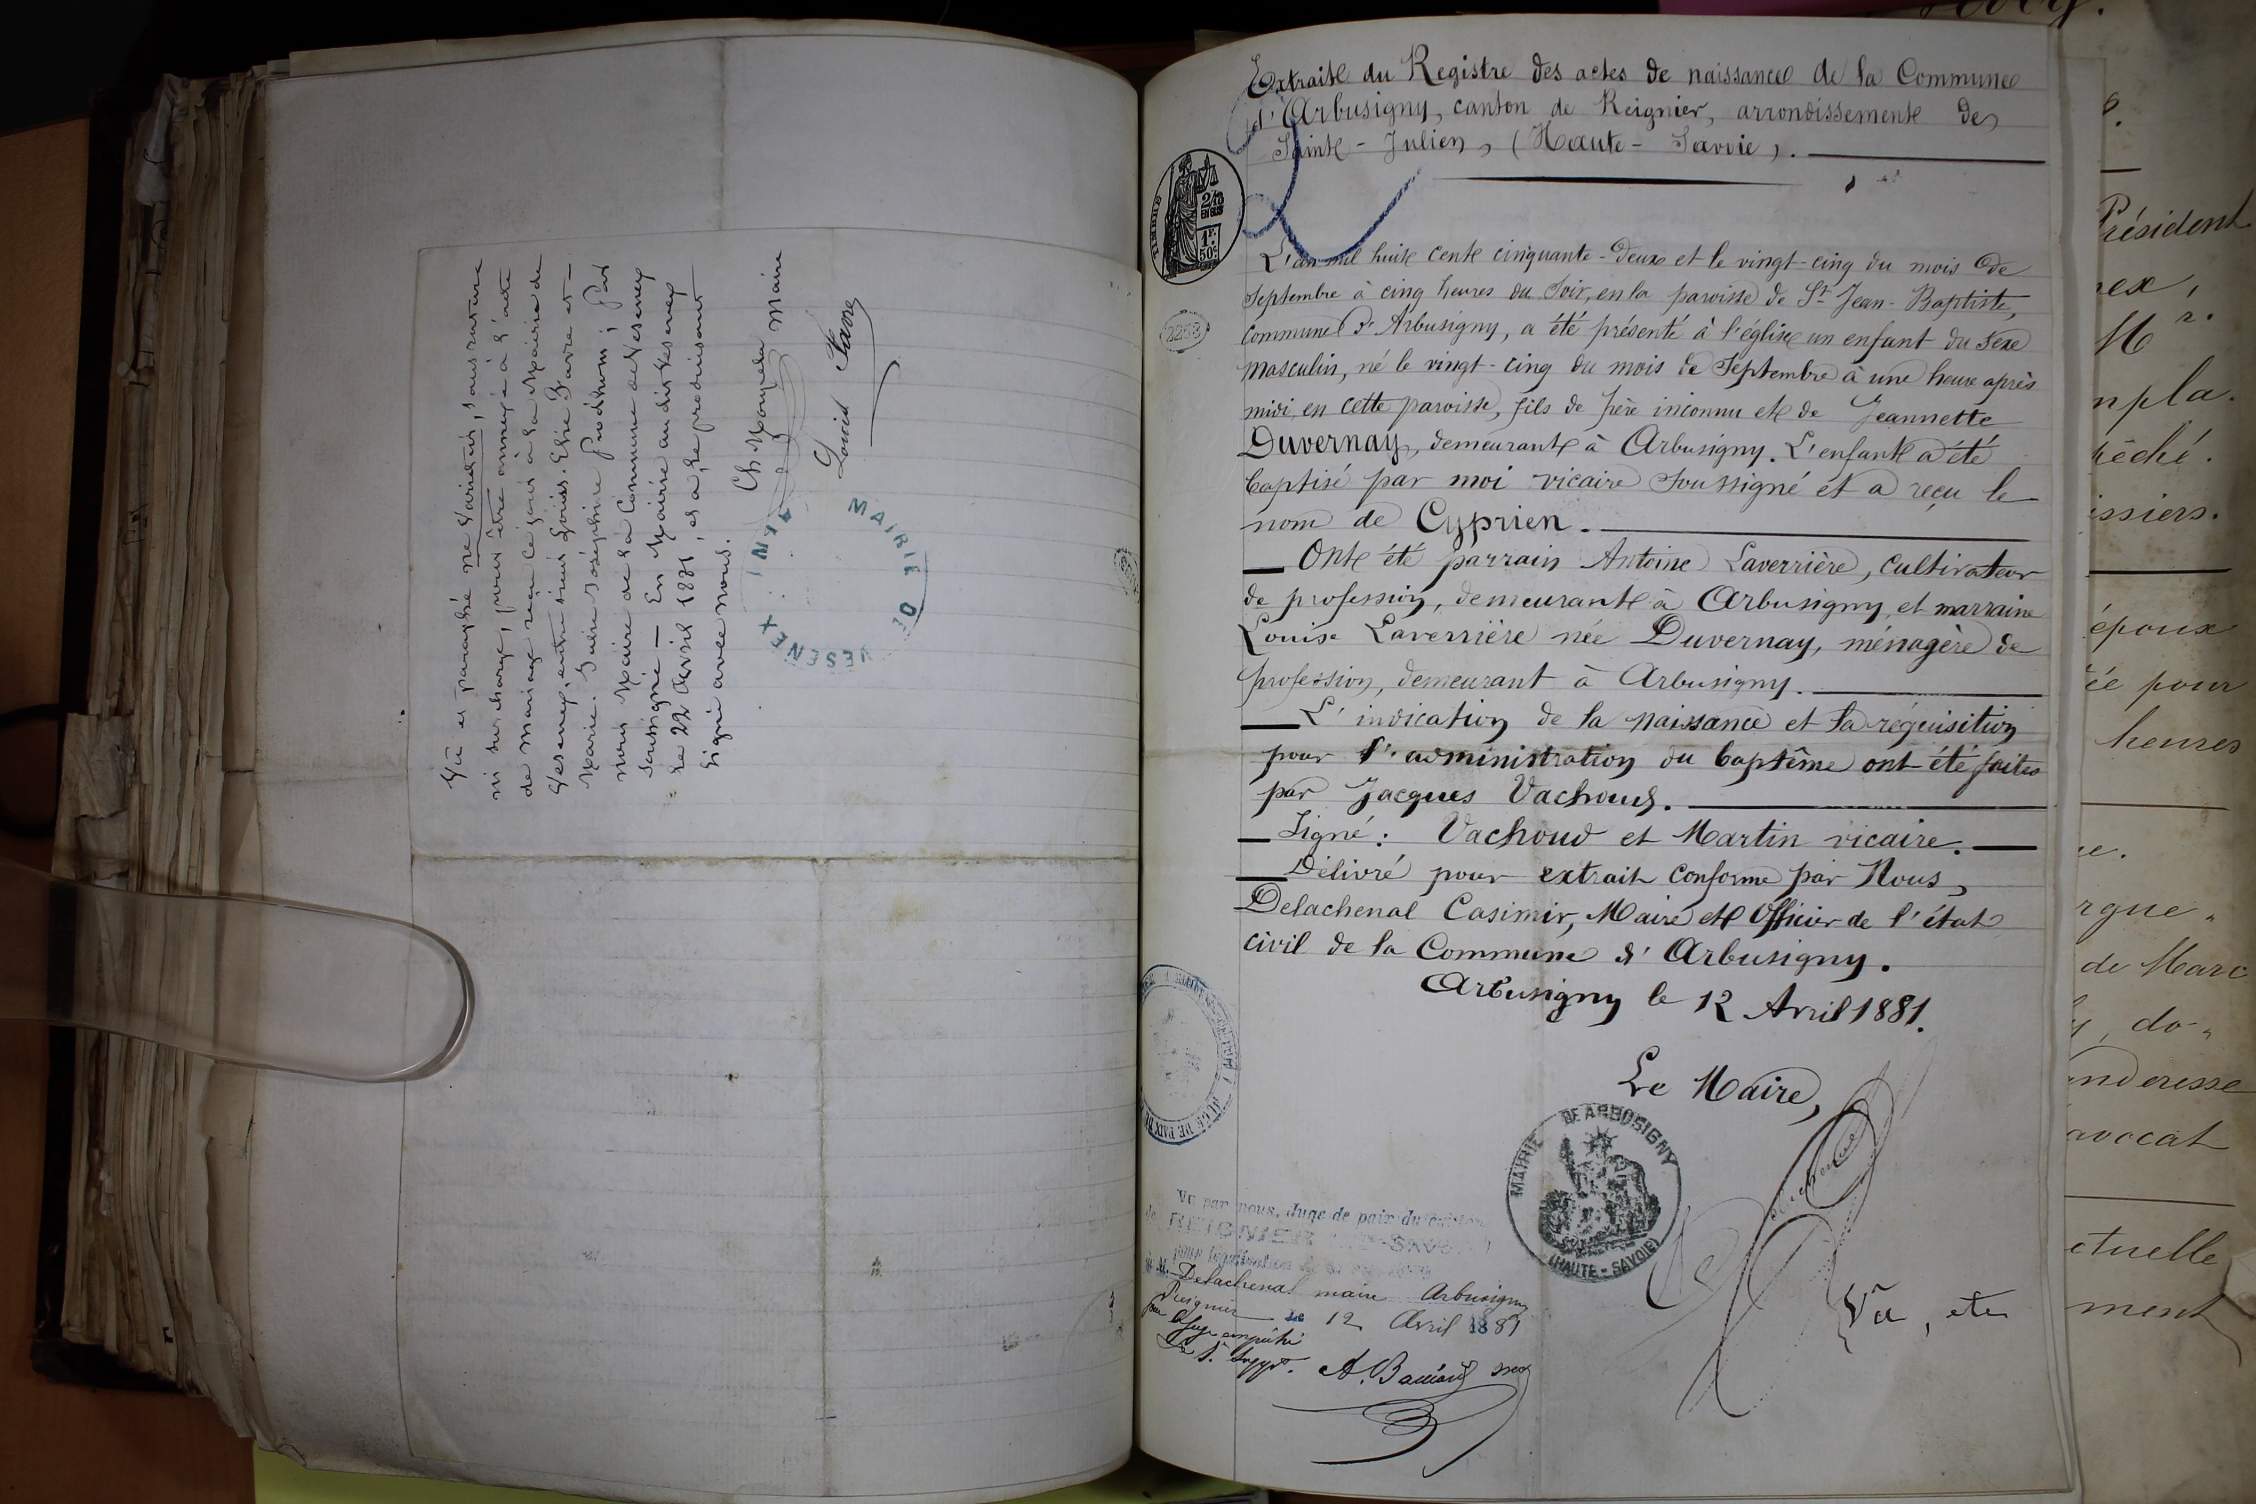 Vu et paraphé ne varietur, sans rature
ni surcharge, pour être annexé à l'acte
de mariage reçu ce jour à la Mairie de
Vesenex, entre Louis Favre et
Marie Joséphine ; Par
nous Maire de la Commune de Vesenex
soussigné — En Mairie au dit Vesenex
le 22 Avril 1881, et a, le produisant
signé avec nous.
Maire
Louis Favre
MAIRIE DE VESENEX AIN
Extrait du Registre des actes de naissance de la Commune
d'Arbusigny, canton de Reignier, arrondissement de
Saint-Julien, (Haute-Savoie).
TIMBRE
2/10
EN SUS
1F.
50c
L'an mil huit cent cinquante-deux et le vingt-cinq du mois de
Septembre à cinq heures du soir, en la paroisse de St Jean-Baptiste,
commune d'Arbusigny, a été présenté à l'église un enfant du sexe
masculin, né le vingt-cinq du mois de Septembre à une heure après
midi, en cette paroisse, fils de père inconnu et de Jeannette
Duvernay, demeurant à Arbusigny. L'enfant a été
baptisé par moi vicaire soussigné et a reçu le
nom de Cyprien.
Ont été parrain Antoine Laverrière, cultivateur
de profession, demeurant à Arbusigny, et marraine
Louise Laverrière née Duvernay, ménagère de
profession, demeurant à Arbusigny.
L'indication de la naissance et la réquisition
pour l'administration du baptême ont été faites
par Jacques Vachoud.
Signé : Vachoud et Martin vicaire.
Délivré pour extrait conforme par Nous,
Delachenal Casimir, Maire et Officier de l'état
civil de la Commune d'Arbusigny.
Arbusigny le 12 Avril 1881.
Le Maire,
MAIRIE D'ARBUSIGNY
(HAUTE-SAVOIE)
JUGE DE PAIX
Vu par nous, Juge de paix du canton
de REIGNIER
pour légalisation
M. Delachenal maire Arbusigny
Reignier Le 12 Avril 1881
pour le Juge empêché
Le 1er Suppt.
Vu, etc
Président
npla.
pêché.
issiers.
époux
ée pour
heures
rgue.
de Marc
do-
anderesse
avocat
ctuelle
ment